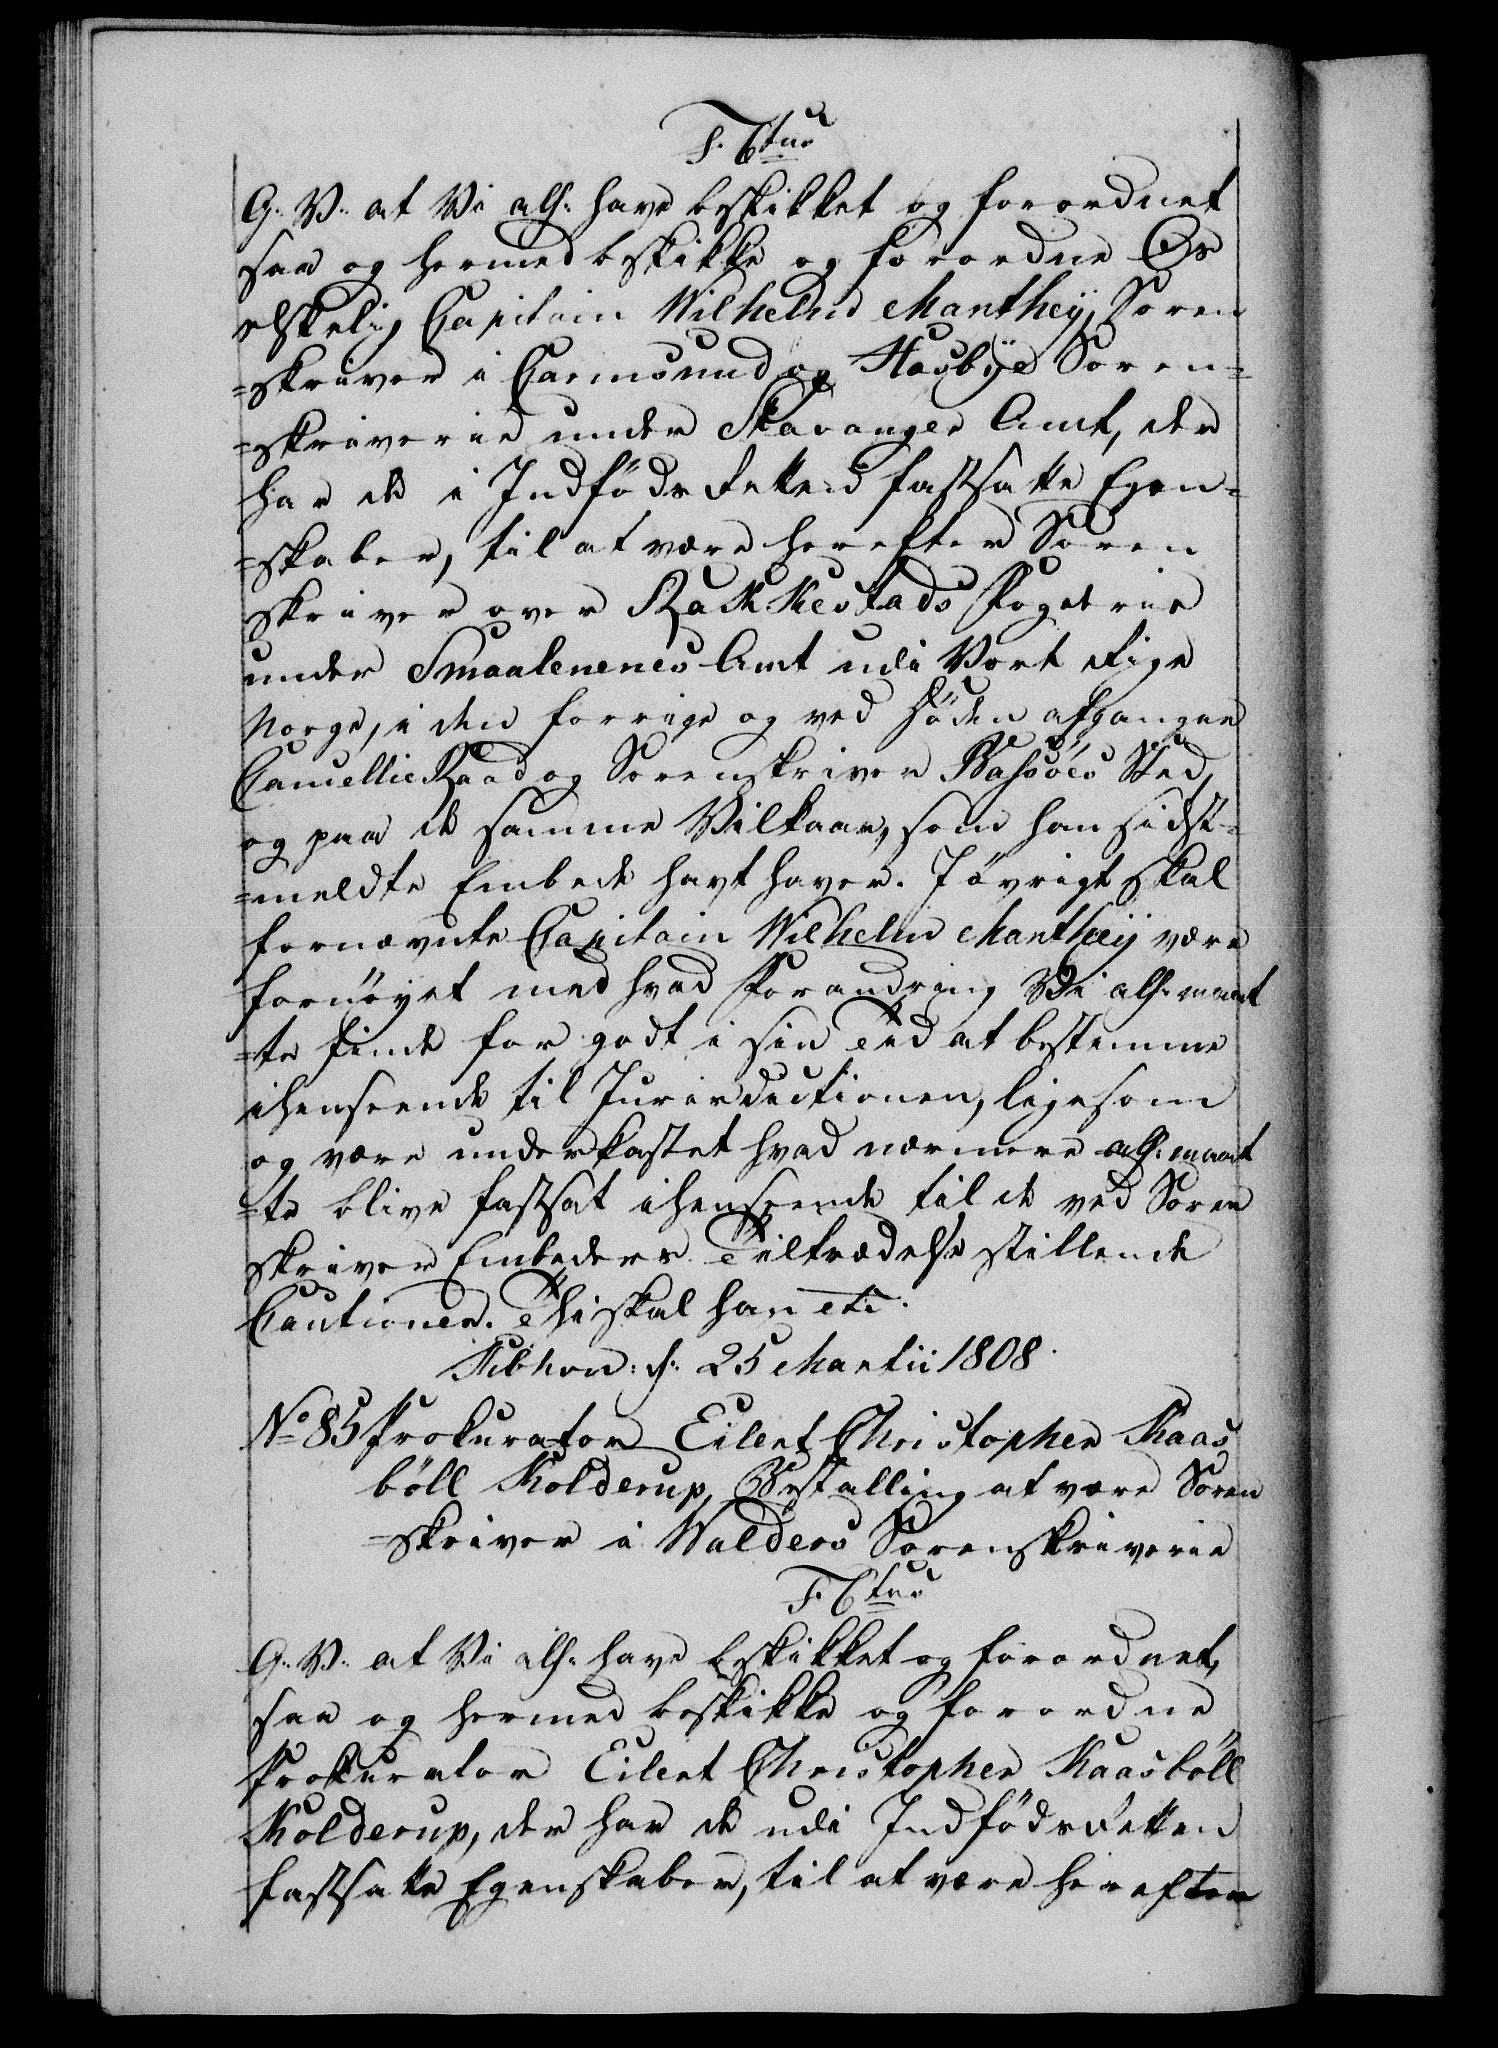 F. 6tus
G. V. at Vi alh. have beskikket og forordnet
saa og hermed beskikke og forordne Os
elskelig Capitain Wilhelm Manthey, Soren
=skriver i Carmsund og Hasbye Soren=
=skriverie under Stavanger Amt, der
har de i Indfödsrettend fastsatte Egen=
=skaber, til at være herefter Soren
skriver over Rakkestads Fogderie
under Smaalenenes Amt udi Vort Rige
Norge, i den forrige og ved Döden afgangne
Cancellie Raad og Sorenskriver Bassöes Sted,
og paa de samme Vilkaar, som han sidst=
=meldte Embede havt haver. I övrigt skal
fornævnte Capitain Wilhelm Manthey være
fornöyet med hvad Forandring Vi alh. maat
=te finde for godt i sin Tid at bestemme
ihenseende til Jurisdictionen, ligesom
og være underkastet hvad nærmere alh. maat
=te blive fastsat ihenseende til de ved Soren
skriver Embeders Tiltrædelse stillende
Cautioner. Thi skal han etc.
Kibhvn: d: 25 Martii 1808.
No 85 Prokurator Eilert Christopher Kaas
böll Kolderup, Bestalling at være Soren
=skriver i Walders Sorenskriverie
F. Ctus
G. V. at Vi alh. have beskikket og forordnet,
saa og hermed beskikke og forordne
Prokurator Eilert Christopher Kaasböll
Kolderup, der har de udi Indfödsretten
fastsatte Egenskaber, til at være herefter